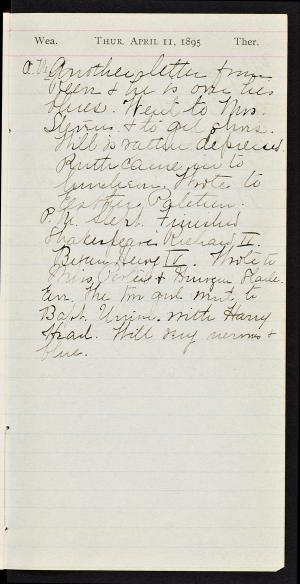 Wea. THUR. APRIL 11, 1895 Ther.
A.M. Another letter from
& he is over his
blues. Went to Mrs.
Stevens & to get shoes.
Will is rather depressed.
Ruth came in to
luncheon. Wrote to
P.M. Slept. Finished
Shakespeare's Richard II.
Began Henry IV. Wrote to
Mrs. &
Eve. The two girls went to
Bapt. Union with Harry
Head. Will very nervous &
blue.